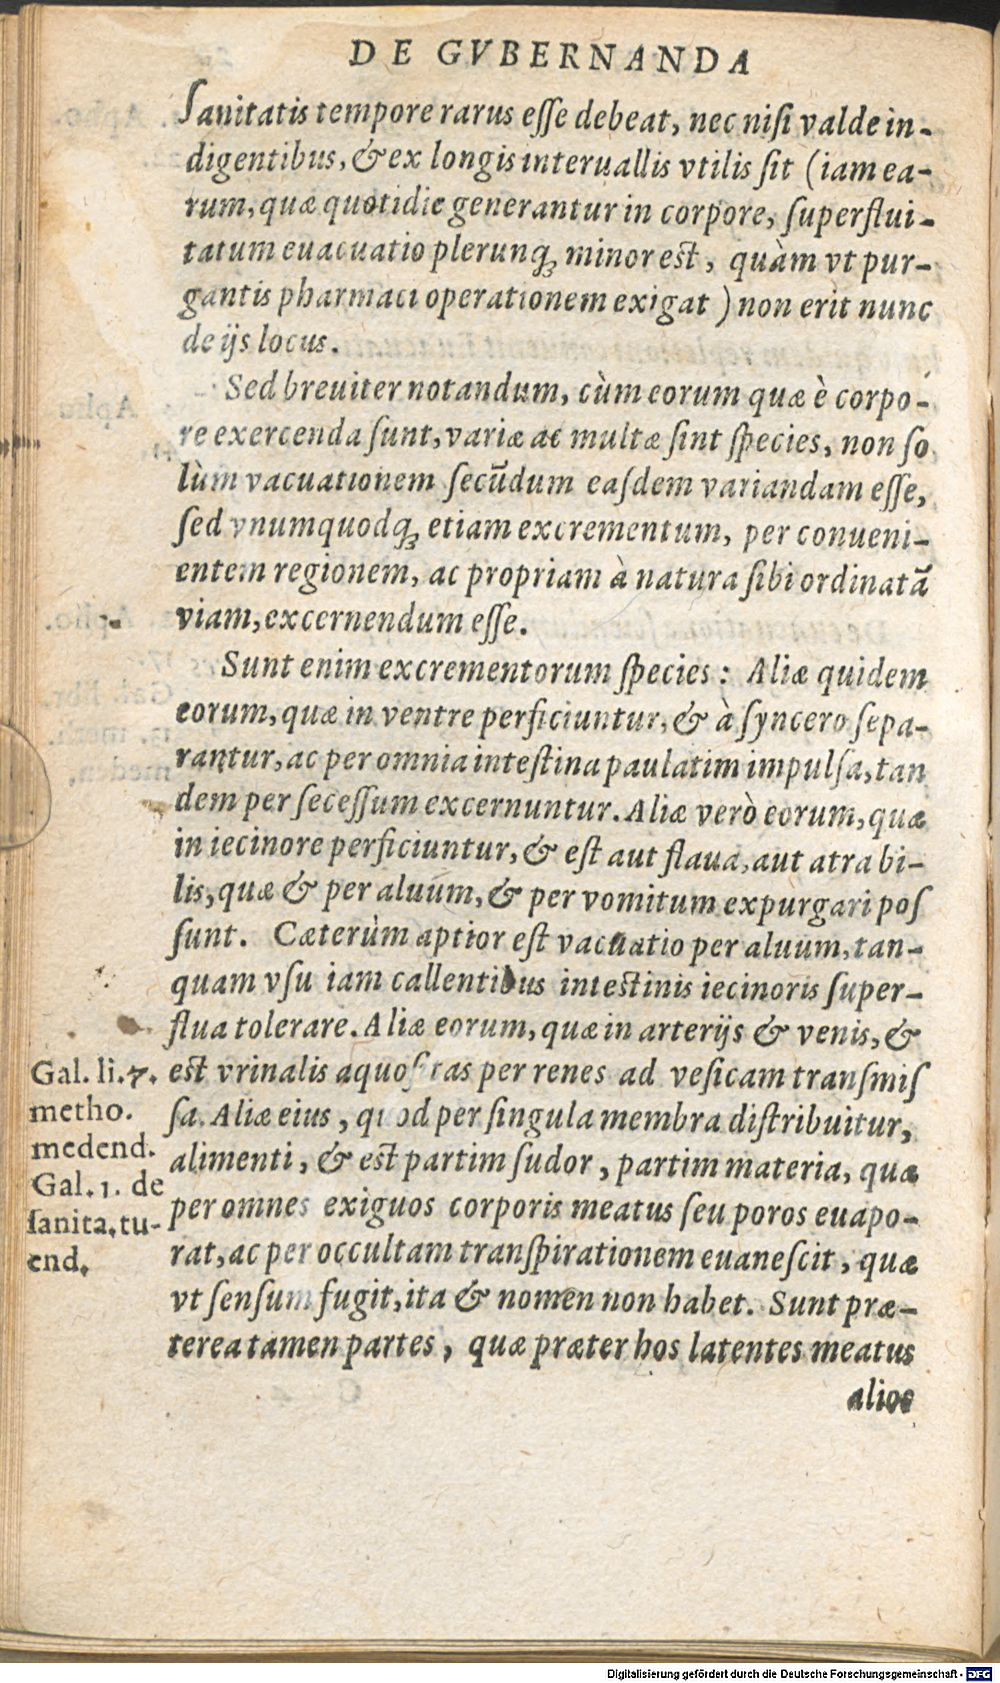 DE GVBERNANDA
ſanitatis tempore rarus eſſe debeat, nec niſi valde in-
digentibus, & ex longis interuallis vtilis ſit (iam ea-
rum, quæ quotidie generantur in corpore, ſuperflui-
tatum euacuatio plerunq; minor est, quàm vt pur-
gantis pharmaci operationem exigat) non erit nunc
de ijs locus.
Sed breuiter notandum, cùm eorum quæ è corpo-
re exercenda ſunt, variæ ac multæ ſint ſpecies, non ſo
lùm vacuationem ſecūdum eaſdem variandam eſſe,
ſed vnumquodq; etiam excrementum, per conueni-
entem regionem, ac propriam à natura ſibi ordinatā
viam, excernendum eſſe.
Sunt enim excrementorum ſpecies: Aliæ quidem
eorum, quæ in ventre perficiuntur, & à ſyncero ſepa-
rantur, ac per omnia inteſtina paulatim impulſa, tan
dem per ſeceſſum excernuntur. Aliæ verò eorum, quæ
in iecinore perficiuntur, & eſt aut flaua, aut atra bi-
lis, quæ & per aluum, & per vomitum expurgari poſ
ſunt. Cæterùm aptior eſt vacuatio per aluum, tan-
quam vſu iam callentibus intestinis iecinoris ſuper-
flua tolerare. Aliæ eorum, quæ in arterijs & venis, &
est vrinalis aquoſitas per renes ad veſicam tranſmiſ
ſa. Aliæ eius, quod per ſingula membra diſtribuitur,
alimenti, & est partim ſudor, partim materia, quæ
per omnes exiguos corporis meatus ſeu poros euapo-
rat, ac per occultam tranſpirationem euaneſcit, quæ
vt ſenſum fugit, ita & nomen non habet. Sunt præ-
terea tamen partes, quæ præter hos latentes meatus
alios
Gal. li. 7.
metho.
medend.
Gal. 1. de
ſanita. tu-
end.
Digitalisierung gefördert durch die Deutsche Forschungsgemeinschaft - DFG